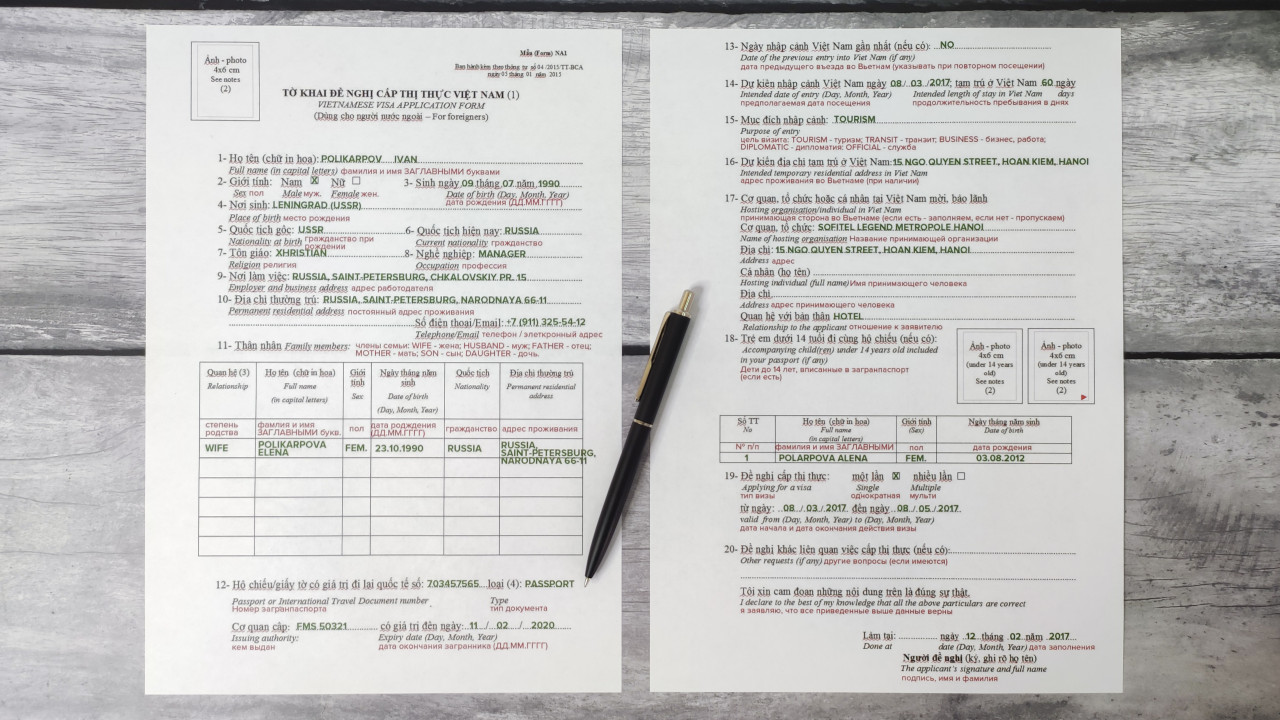 Ảnh - photo
4x6 cm
See notes
(2)
Mẫu (Form) NA1
Ban hành kèm theo thông tư số 04 /2015/TT-BCA
ngày 05 tháng 01 năm 2015
TỜ KHAI ĐỀ NGHỊ CẤP THỊ THỰC VIỆT NAM (1)
VIETNAMESE VISA APPLICATION FORM
(Dùng cho người nước ngoài – For foreigners)
1- Họ tên (chữ in hoa): POLIKARPOV IVAN
Full name (in capital letters) фамилия и имя ЗАГЛАВНЫМИ буквами
2- Giới tính: Nam ☒ Nữ ☐ 3- Sinh ngày 09 tháng 07 năm 1990
Sex пол Male муж. Female жен. Date of birth (Day, Month, Year)
дата рождения (ДД.ММ.ГГГГ)
4- Nơi sinh: LENINGRAD (USSR)
Place of birth место рождения
5- Quốc tịch gốc: USSR 6- Quốc tịch hiện nay: RUSSIA
Nationality at birth гражданство при рождении Current nationality гражданство
7- Tôn giáo: XHRISTIAN 8- Nghề nghiệp: MANAGER
Religion религия Occupation профессия
9- Nơi làm việc: RUSSIA, SAINT-PETERSBURG, CHKALOVSKIY PR. 15
Employer and business address адрес работодателя
10- Địa chỉ thường trú: RUSSIA, SAINT-PETERSBURG, NARODNAYA 66-11
Permanent residential address постоянный адрес проживания
Số điện thoại/Email: +7 (911) 325-54-12
Telephone/Email телефон / элеткронный адрес
11- Thân nhân Family members: члены семьи: WIFE - жена; HUSBAND - муж; FATHER - отец;
MOTHER - мать; SON - сын; DAUGHTER - дочь.
Quan hệ (3) Họ tên (chữ in hoa) Giới tính Ngày tháng năm sinh Quốc tịch Địa chỉ thường trú
Relationship Full name Sex Date of birth Nationality Permanent residential address
(in capital letters) (Day, Month, Year)
степень родства фамилия и имя ЗАГЛАВНЫМИ букв. пол дата рождения (ДД.ММ.ГГГГ) гражданство адрес проживания
WIFE POLIKARPOVA ELENA FEM. 23.10.1990 RUSSIA RUSSIA, SAINT-PETERSBURG, NARODNAYA 66-11
12- Hộ chiếu/giấy tờ có giá trị đi lại quốc tế số: 703457565 loại (4): PASSPORT
Passport or International Travel Document number Type
Номер загранпаспорта тип документа
Cơ quan cấp: FMS 50321 có giá trị đến ngày: 11 / 02 / 2020
Issuing authority: Expiry date (Day, Month, Year)
кем выдан дата окончания загранника (ДД.ММ.ГГГГ)
13- Ngày nhập cảnh Việt Nam gần nhất (nếu có): NO
Date of the previous entry into Viet Nam (if any)
дата предыдущего въезда во Вьетнам (указывать при повторном посещении)
14- Dự kiến nhập cảnh Việt Nam ngày 08 / 03 / 2017; tạm trú ở Việt Nam 60 ngày
Intended date of entry (Day, Month, Year) Intended length of stay in Viet Nam days
предполагаемая дата посещения продолжительность пребывания в днях
15- Mục đích nhập cảnh: TOURISM
Purpose of entry
цель визита: TOURISM - туризм; TRANSIT - транзит; BUSINESS - бизнес, работа;
DIPLOMATIC - дипломатия: OFFICIAL - служба
16- Dự kiến địa chỉ tạm trú ở Việt Nam: 15 NGO QUYEN STREET, HOAN KIEM, HANOI
Intended temporary residential address in Viet Nam
адрес проживания во Вьетнаме (при наличии)
17- Cơ quan, tổ chức hoặc cá nhân tại Việt Nam mời, bảo lãnh
Hosting organisation/individual in Viet Nam
принимающая сторона во Вьетнаме (если есть - заполняем, если нет - пропускаем)
Cơ quan, tổ chức: SOFITEL LEGEND METROPOLE HANOI
Name of hosting organisation Название принимающей организации
Địa chỉ: 15 NGO QUYEN STREET, HOAN KIEM, HANOI
Address адрес
Cá nhân (họ tên)
Hosting individual (full name) Имя принимающего человека
Địa chỉ
Address адрес принимающего человека
Quan hệ với bản thân HOTEL
Relationship to the applicant отношение к заявителю
18- Trẻ em dưới 14 tuổi đi cùng hộ chiếu (nếu có):
Accompanying child(ren) under 14 years old included
in your passport (if any)
Дети до 14 лет, вписанные в загранпаспорт
(если есть)
Ảnh - photo
4x6 cm
(under 14 years
old)
See notes
(2)
Ảnh - photo
4x6 cm
(under 14 years
old)
See notes
(2)
Số TT Họ tên (chữ in hoa) Giới tính Ngày tháng năm sinh
No Full name (Sex) Date of birth
(in capital letters)
№ п/п фамилия и имя ЗАГЛАВНЫМИ пол дата рождения
1 POLARPOVA ALENA FEM. 03.08.2012
19- Đề nghị cấp thị thực: một lần ☒ nhiều lần ☐
Applying for a visa Single Multiple
тип визы однократная мульти
từ ngày: 08 / 03 / 2017 đến ngày 08 / 05 / 2017
valid from (Day, Month, Year) to (Day, Month, Year)
дата начала и дата окончания действия визы
20- Đề nghị khác liên quan việc cấp thị thực (nếu có):
Other requests (if any) другие вопросы (если имеются)
Tôi xin cam đoan những nội dung trên là đúng sự thật.
I declare to the best of my knowledge that all the above particulars are correct
я заявляю, что все приведенные выше данные верны
Làm tại: ngày 12 tháng 02 năm 2017
Done at date (Day, Month, Year) дата заполнения
Người đề nghị (ký, ghi rõ họ tên)
The applicant's signature and full name
подпись, имя и фамилия